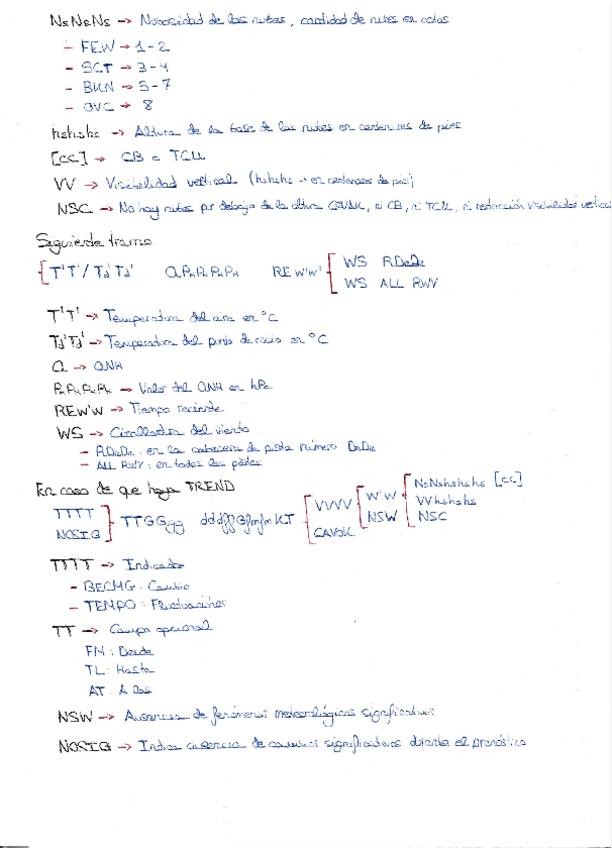 NsNsNs → Nubosidad de las nubes, cantidad de nubes en octas
- FEW → 1-2
- SCT → 3-4
- BKN → 5-7
- OVC → 8
hshshs → Altura de la base de las nubes en centenares de pies
[CC] → CB o TCU
VV → Visibilidad vertical (hshshs → en centenares de pies)
NSC → No hay nubes por debajo de la altura CAVOK, ni CB, ni TCU, ni restricción visibilidad vertical
Siguiente tramo
{T'T'/Td'Td' QPHPHPHPH REW'W' [WS RDRDR
WS ALL RWY
T'T' → Temperatura del aire en °C
Td'Td' → Temperatura del punto de rocío en °C
Q → QNH
PHPHPHPH → Valor del QNH en hPa
REW'W → Tiempo reciente
WS → Cizalladura del viento
- RDRDR: en la cabecera de pista número DRDR
- ALL RWY: en todas las pistas
En caso de que haya TREND
TTTT
NOSIG ] TTGGgg dddffGfmfm KT [VVVV
CAVOK [W'W'
NSW [NsNshshshs [CC]
VVhshshs
NSC
TTTT → Indicador
- BECMG: Cambio
- TEMPO: Fluctuaciones
TT → Campo opcional
FM: Desde
TL: Hasta
AT: A las
NSW → Ausencia de fenómenos meteorológicos significativos
NOSIG → Indica ausencia de cambios significativos durante el pronóstico